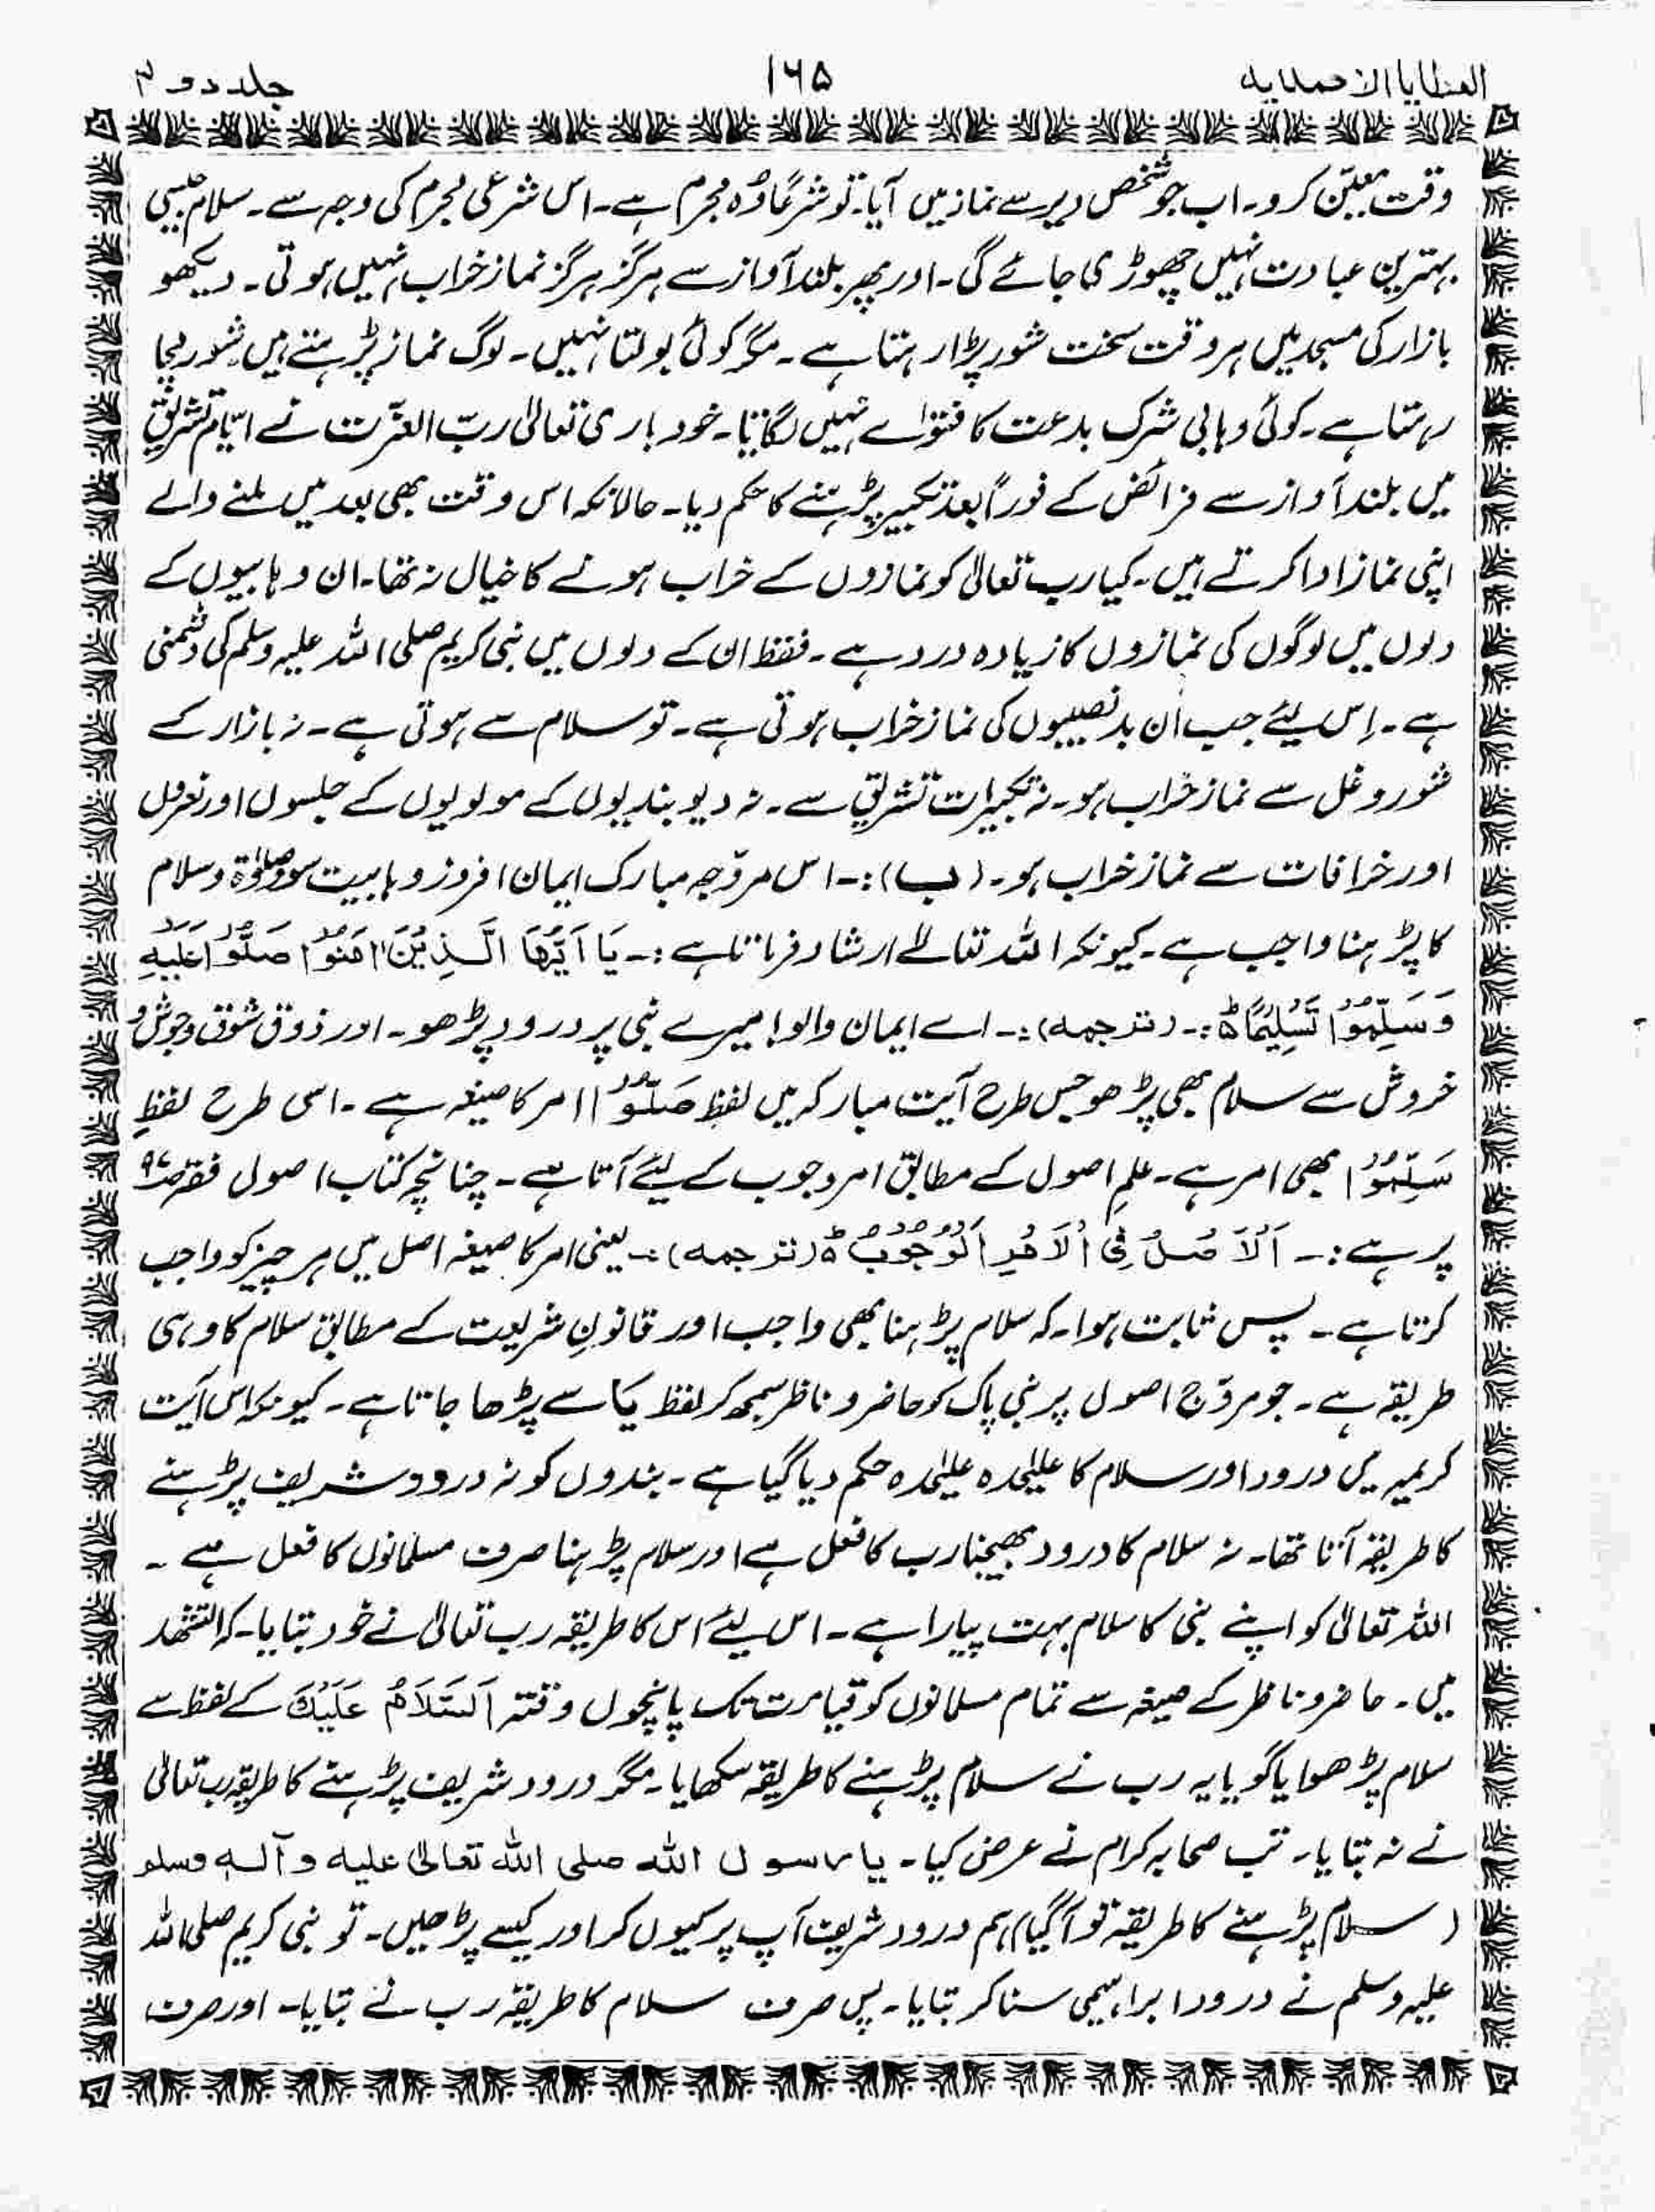 العطایا الاحمدیه ۱۶۵ جلد دوم
وقت معیّن کرو۔ اب جو شخص دیر سے نماز میں آیا۔ تو شرعًا وُہ مجرم ہے۔ اس شرعی مجرم کی وجہ سے۔ سلام جیسی
بہترین عبادت نہیں چھوڑی جائے گی۔ اور پھر بلند آواز سے ہرگز ہرگز نماز خراب نہیں ہوتی۔ دیکھو
بازار کی مسجد میں ہر وقت سخت شور پڑا رہتا ہے۔ مگر کوئی بولتا نہیں۔ لوگ نماز پڑہتے ہیں شور مچا
رہتا ہے۔ کوئی وہابی شرک بدعت کا فتوٰے نہیں لگاتا۔ خود باری تعالیٰ ربّ العزّت نے ایّام تشریق
میں بلند آواز سے فرائض کے فوراً بعد تکبیر پڑہنے کا حکم دیا۔ حالانکہ اس وقت بھی بعد میں ملنے والے
اپنی نماز ادا کرتے ہیں۔ کیا رب تعالیٰ کو نمازوں کے خراب ہونے کا خیال نہ تھا۔ ان وہابیوں کے
دلوں میں لوگوں کی نمازوں کا زیادہ درد ہے۔ فقط ان کے دلوں میں نبی کریم صلی اللہ علیہ وسلم کی دشمنی
ہے۔ اِس لیئے جب اُن بدنصیبوں کی نماز خراب ہوتی ہے۔ تو سلام سے ہوتی ہے۔ نہ بازار کے
شور و غل سے نماز خراب ہو۔ نہ تکبیرات تشریق سے۔ نہ دیوبندیوں کے مولویوں کے جلسوں اور نعروں
اور خرافات سے نماز خراب ہو۔ (ب) :۔ اس مروّجہ مبارک ایمان افروز وہابیت سوز صلوٰۃ و سلام
کا پڑہنا واجب ہے۔ کیونکہ اللہ تعالےٰ ارشاد فرماتا ہے :۔ یَا اَیُّهَا الَّذِیْنَ اٰمَنُوْا صَلُّوْا عَلَیْهِ
وَسَلِّمُوْا تَسْلِیْمًا ؕ:۔ (ترجمه) :۔ اے ایمان والو! میرے نبی پر درود پڑھو۔ اور ذوق شوق و جوش و
خروش سے سلام بھی پڑھو جس طرح آیت مبارکہ میں لفظ صَلُّوْا امر کا صیغہ ہے۔ اسی طرح لفظِ
سَلِّمُوْا بھی امر ہے۔ علمِ اصول کے مطابق امر وجوب کے لیئے آتا ہے۔ چنانچہ کتاب اصول فقہ صـ۹۶
پر ہے :۔ اَلْاَ صْلُ فِی الْاَمْرِ اَلْوُجُوْبُ ؕ (ترجمه) :۔ یعنی امر کا صیغہ اصل میں ہر چیز کو واجب
کرتا ہے۔ پس ثابت ہوا۔ کہ سلام پڑہنا بھی واجب اور قانونِ شریعت کے مطابق سلام کا وہی
طریقہ ہے۔ جو مروّج اصول پر نبی پاک کو حاضر و ناظر سمجھ کر لفظ یَا سے پڑھا جاتا ہے۔ کیونکہ اس آیت
کریمہ میں درود اور سلام کا علیٰحدہ علیٰحدہ حکم دیا گیا ہے۔ بندوں کو نہ درود شریف پڑہنے
کا طریقہ آتا تھا۔ نہ سلام کا درود بھیجنا رب کا فعل ہے اور سلام پڑہنا صرف مسلمانوں کا فعل ہے۔
اللہ تعالیٰ کو اپنے نبی کا سلام بہت پیارا ہے۔ اس لیئے اس کا طریقہ رب تعالیٰ نے خود بتایا۔ کہ التشھد
میں۔ حاضر و ناظر کے صیغہ سے تمام مسلمانوں کو قیامت تک پانچوں وقتہ اَلسَّلَامُ عَلَیْكَ کے لفظ سے
سلام پڑھوایا گویا یہ رب نے سلام پڑہنے کا طریقہ سکھایا۔ مگر درود شریف پڑہنے کا طریقہ رب تعالیٰ
نے نہ بتایا۔ تب صحابہ کرام نے عرض کیا۔ یا رسول الله صلی الله تعالیٰ علیه وآلهٖ وسلم
( سلام پڑہنے کا طریقہ تو آگیا) ہم درود شریف آپ پر کیوں کر اور کیسے پڑھیں۔ تو نبی کریم صلی اللہ
علیہ وسلم نے درود ابراہیمی سنا کر بتایا۔ پس صرف سلام کا طریقہ رب نے بتایا۔ اور صرف